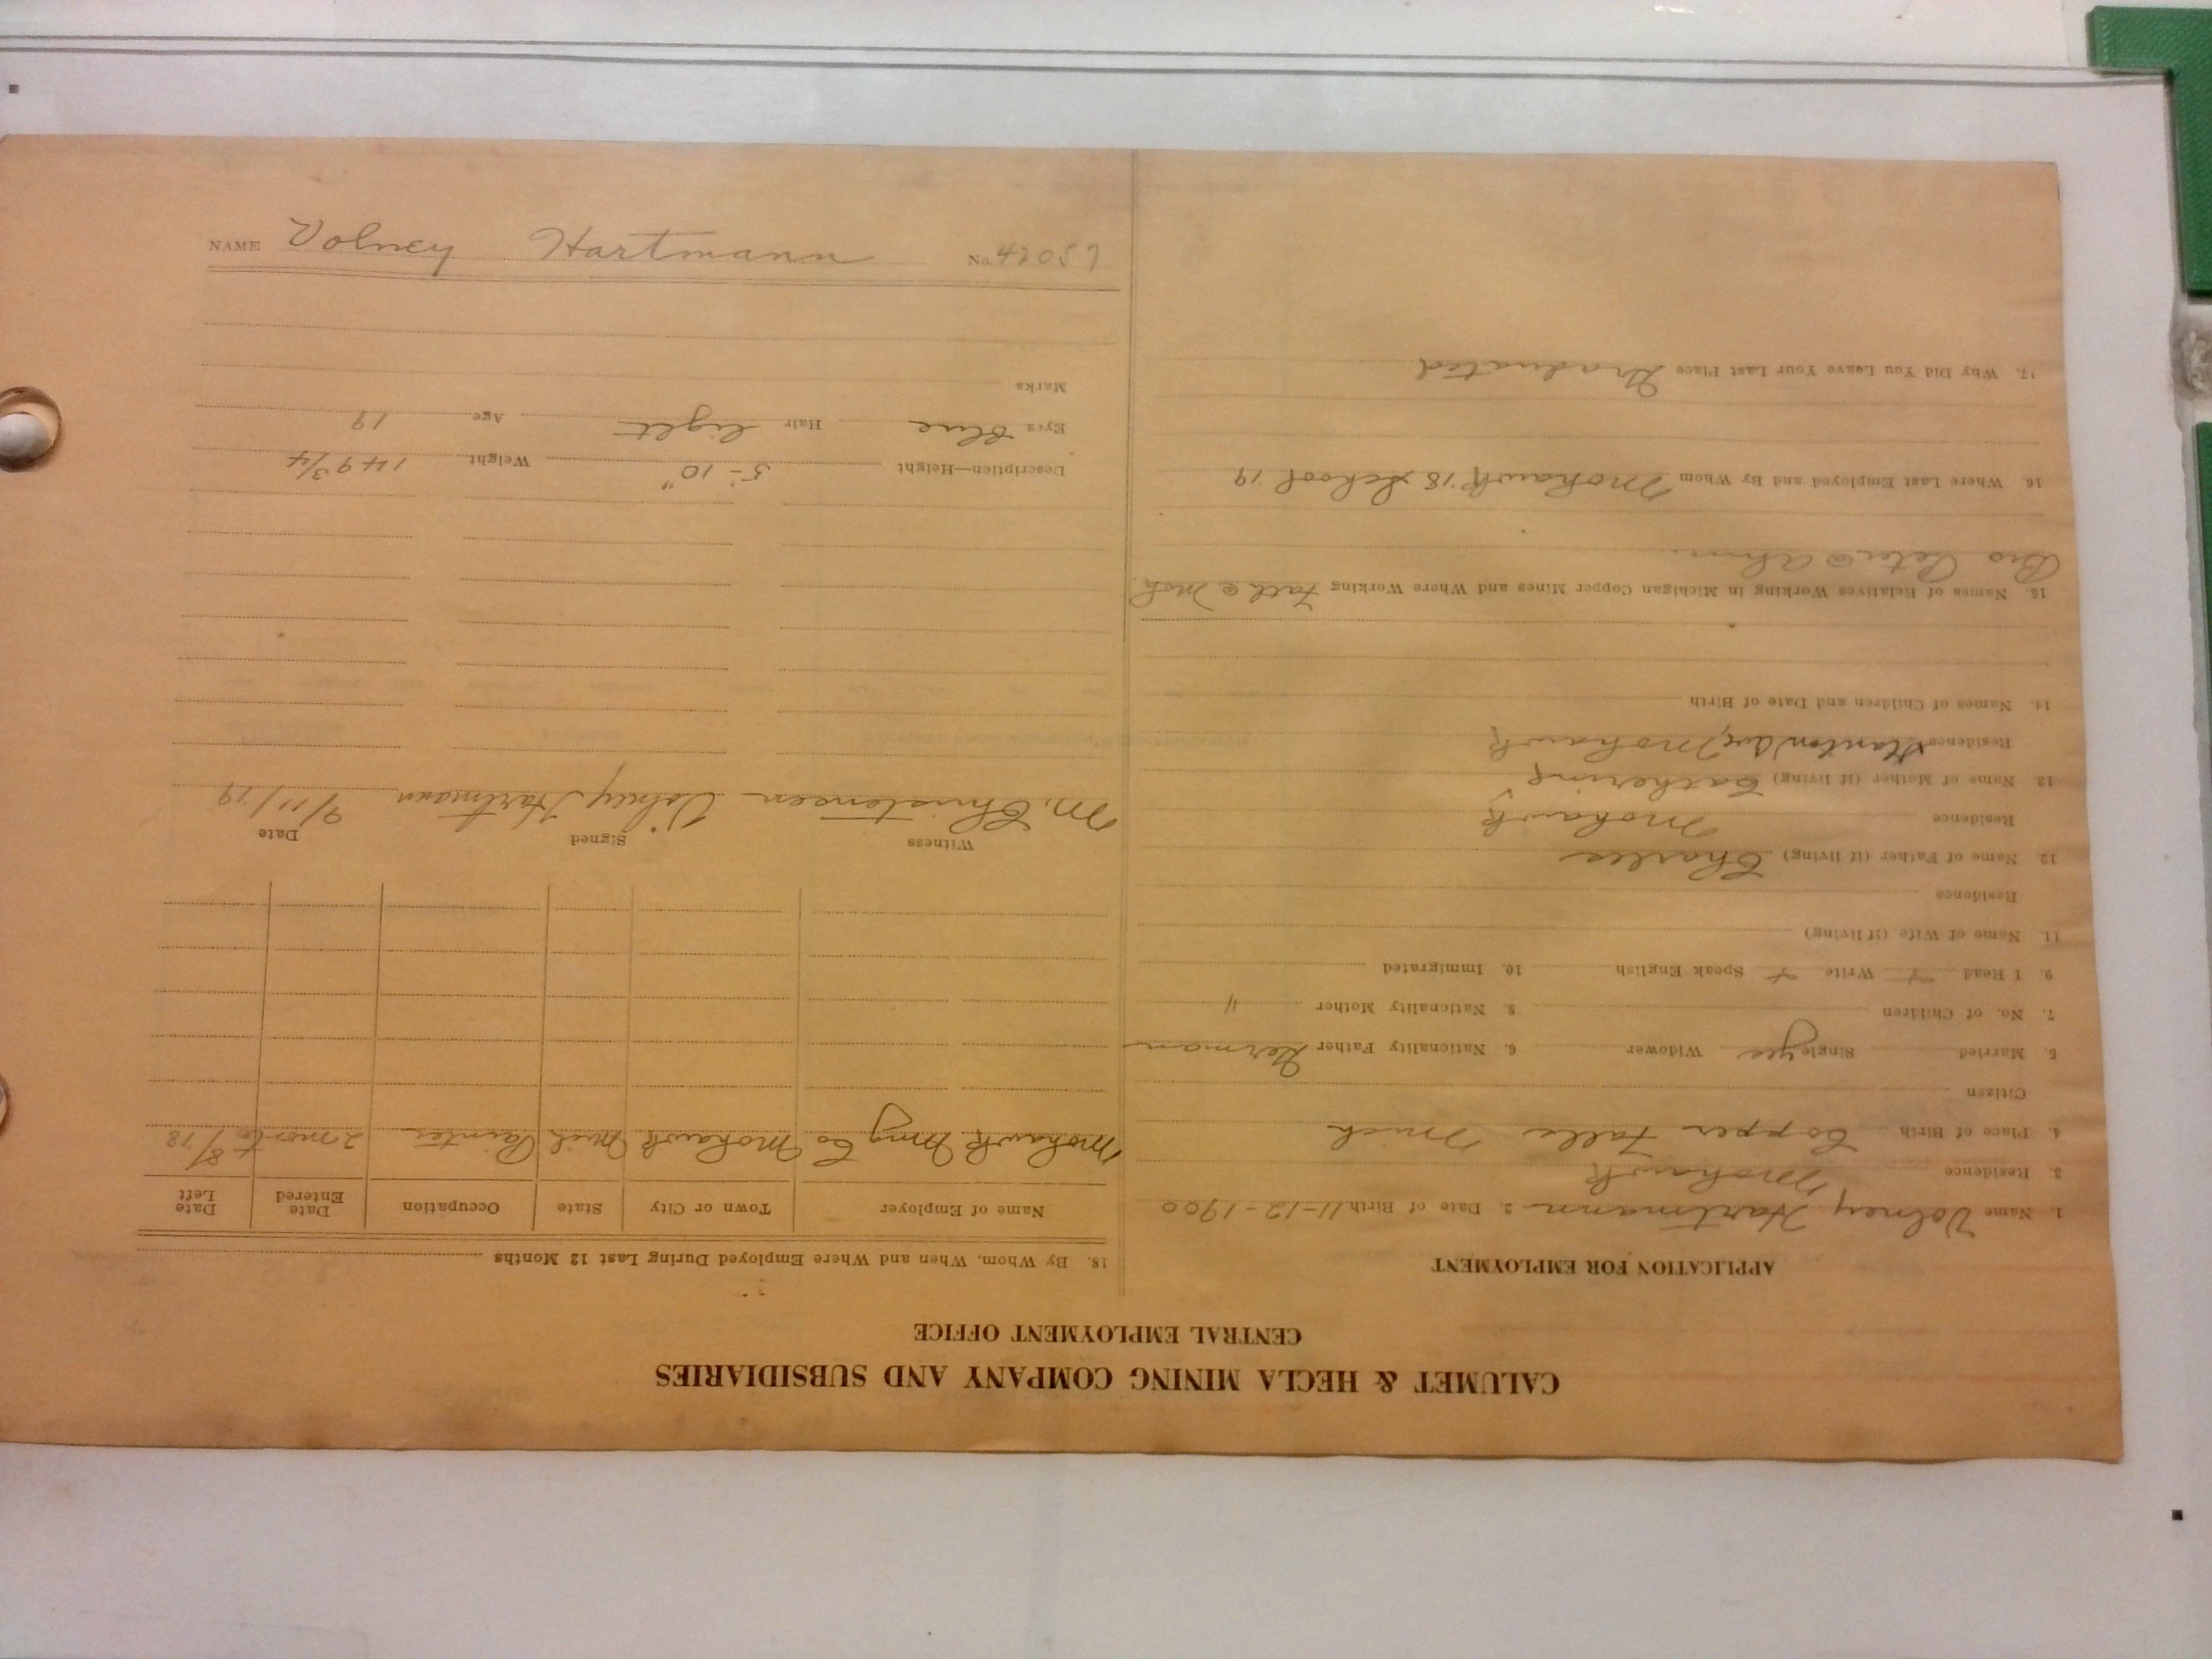 CALUMET & HECLA MINING COMPANY AND SUBSIDIARIES
CENTRAL EMPLOYMENT OFFICE
APPLICATION FOR EMPLOYMENT
1. Name Volney Hartmann 2. Date of Birth 11-12-1900
3. Residence Mohawk
4. Place of Birth Copper Falls Mich
Citizen
5. Married Single yes Widower 6. Nationality Father German
7. No. of Children 8. Nationality Mother "
9. I Read + Write + Speak English 10. Immigrated
11. Name of Wife (if living)
Residence
12. Name of Father (if living) Charles
Residence Mohawk
13. Name of Mother (if living) Catherine
Residence Stanton Ave, Mohawk
14. Names of Children and Date of Birth
15. Names of Relatives Working in Michigan Copper Mines and Where Working Fath @ Moh.
Bro Peter @ Ahm.
16. Where Last Employed and By Whom Mohawk '18 School '19
17. Why Did You Leave Your Last Place Graduated
18. By Whom, When and Where Employed During Last 12 Months
Name of Employer Town or City State Occupation Date Entered Date Left
Mohawk Mng Co Mohawk Mich Painter 2 mos to 8/18
Witness Signed Date
M. Christensen Volney Hartmann 9/11/19
Description—Height 5'-10" Weight 149 3/4
Eyes blue Hair light Age 19
Marks
NAME Volney Hartmann No. 42057